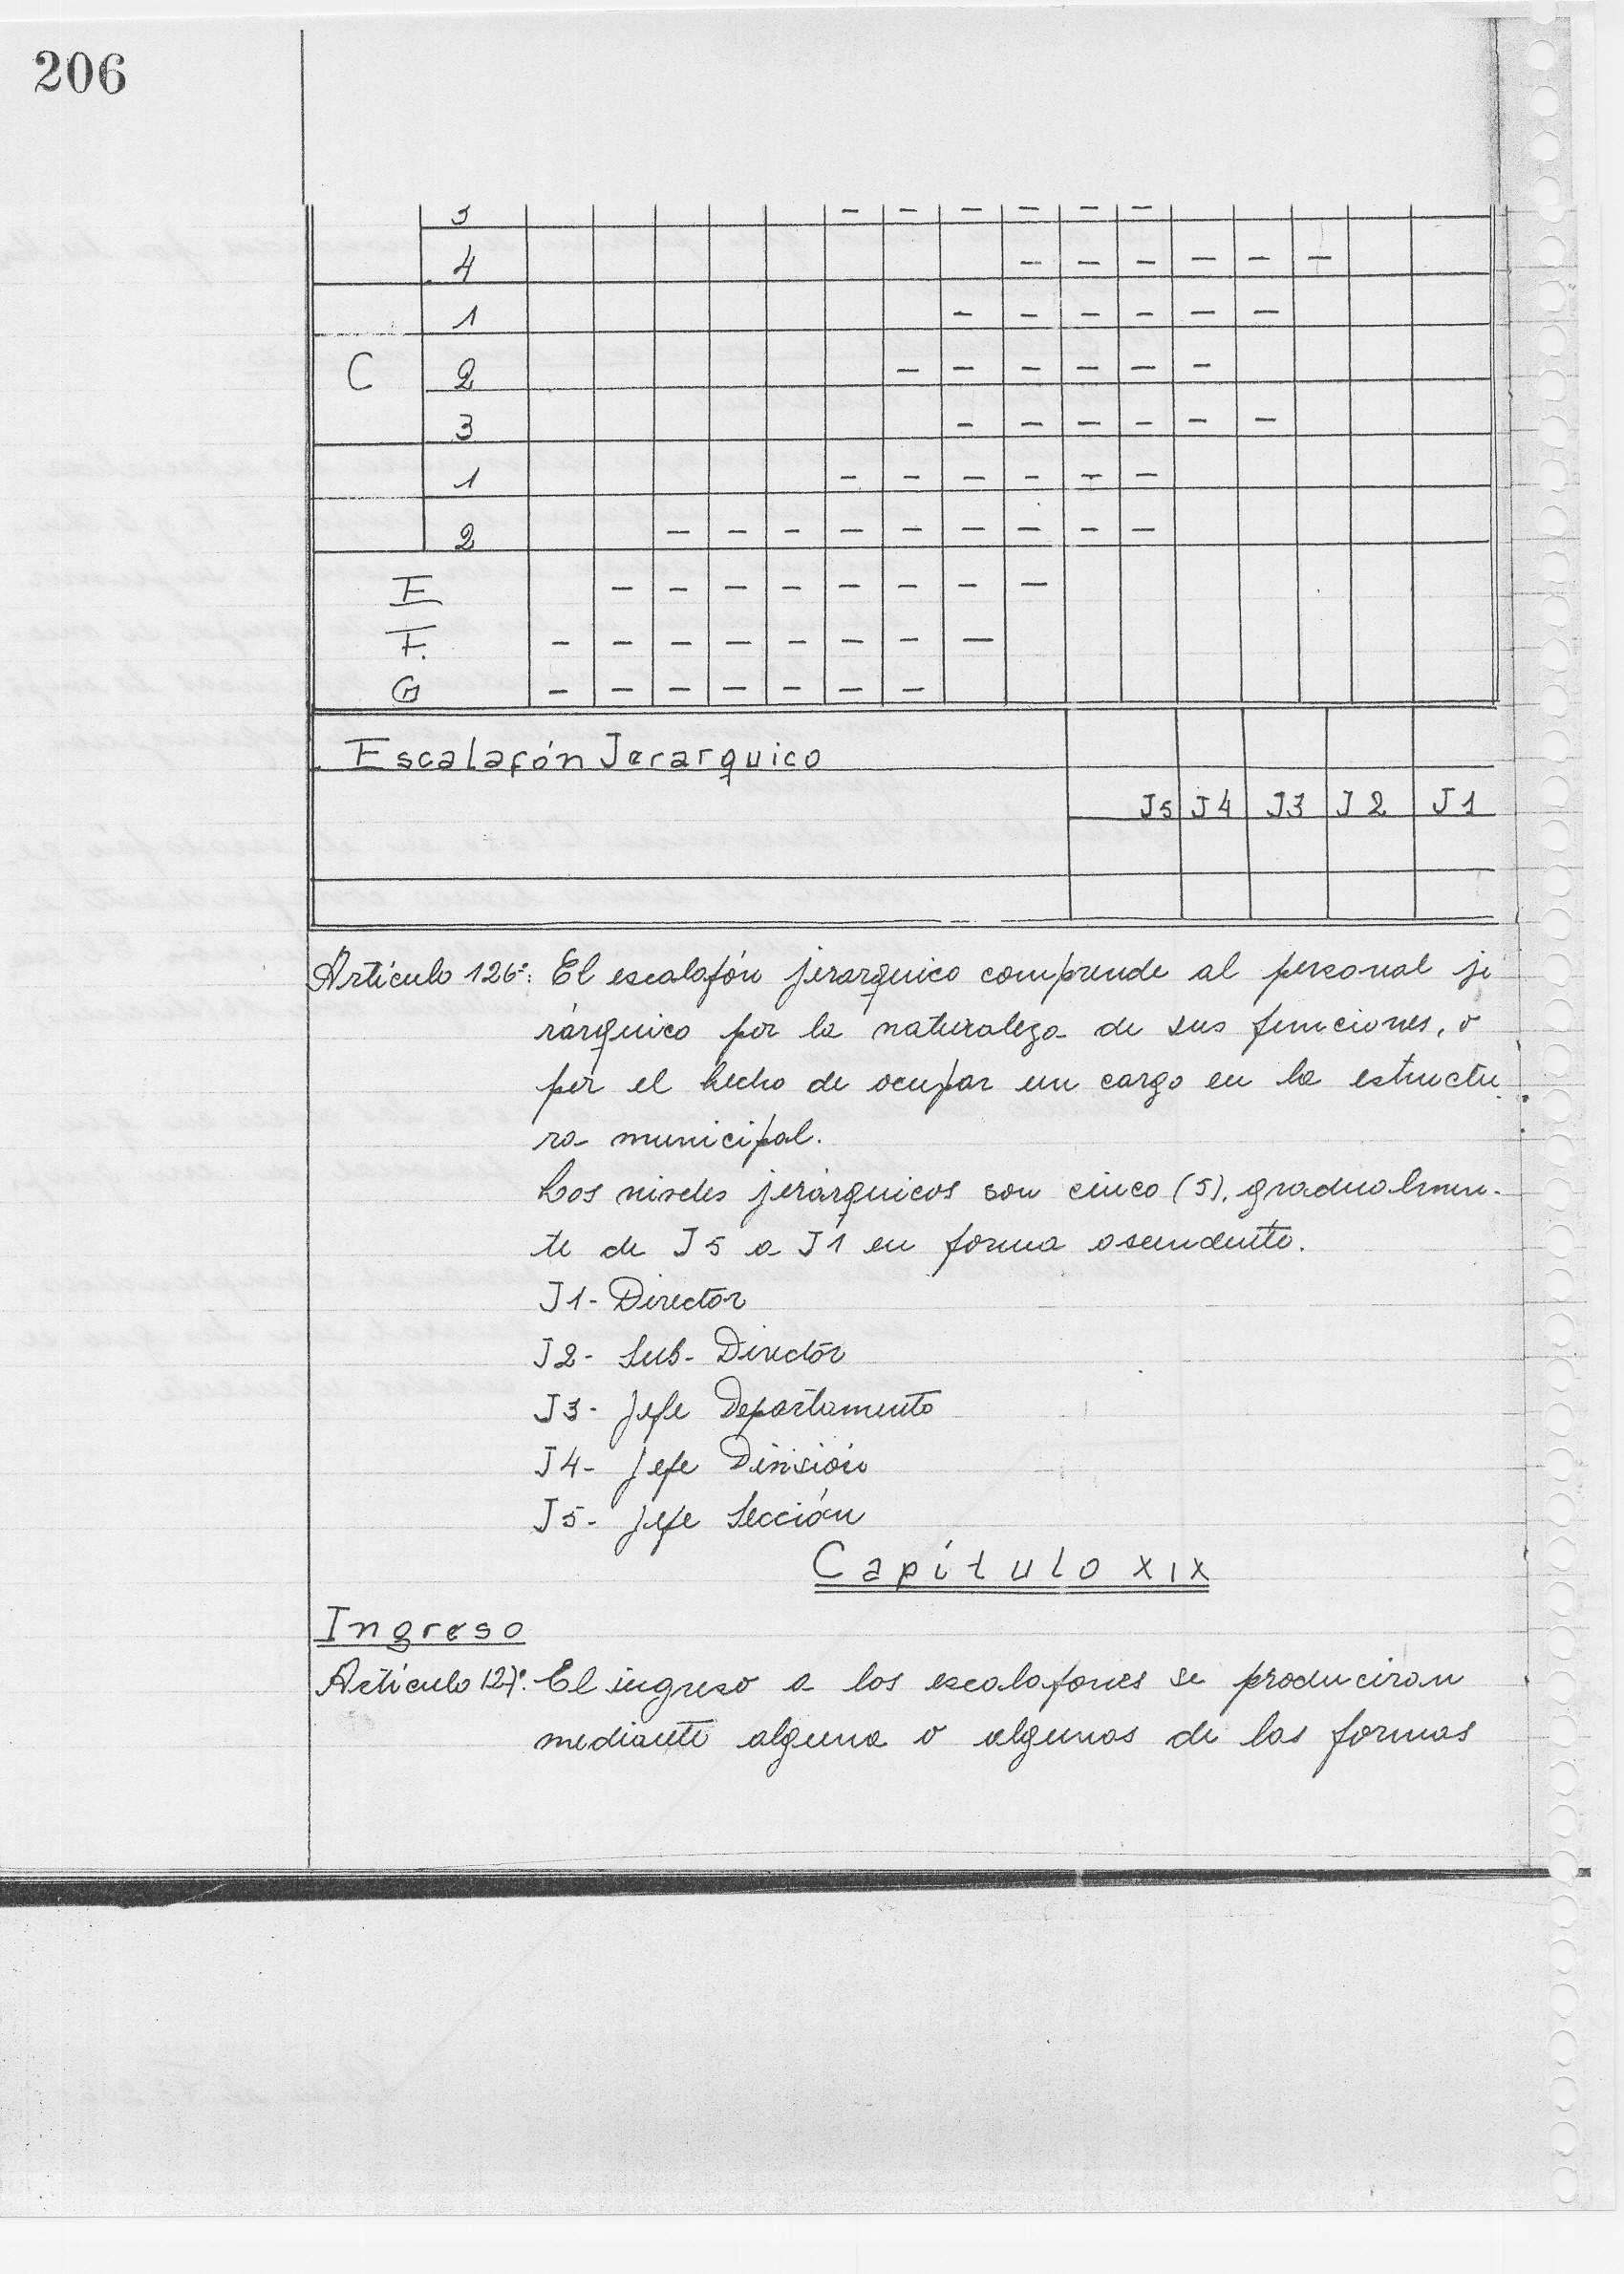 206
3 – – – – – –
4 – – – – – –
1 – – – – – –
C 2 – – – – – –
3 – – – – – –
1 – – – – – –
2 – – – – – – – – –
E – – – – – – – –
F. – – – – – – – –
G – – – – – – –
Escalafón Jerarquico
J5 J4 J3 J2 J1
Artículo 126º: El escalafón jerárquico comprende al personal je
rárquico por la naturaleza de sus funciones, o
por el hecho de ocupar un cargo en la estructu
ra municipal.
Los niveles jerárquicos son cinco (5), gradualmen-
te de J5 a J1 en forma ascendente.
J1- Director
J2- Sub-Director
J3- Jefe Departamento
J4- Jefe División
J5- Jefe Sección
Capítulo XIX
Ingreso
Artículo 127º: El ingreso a los escalafones se produciran
mediante alguna o algunas de las formas